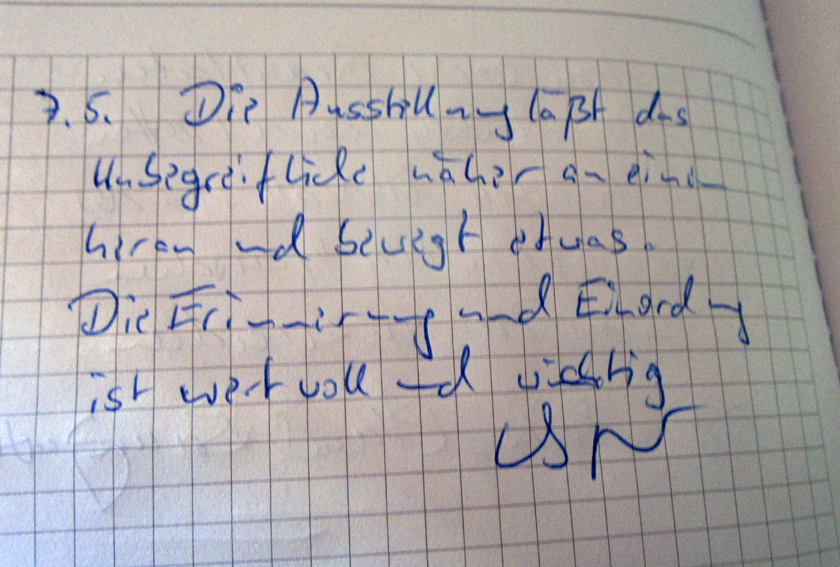 7.5. Die Ausstellung läßt das
Unbegreifliche näher an einen
heran und bewegt etwas.
Die Erinnerung und Einordnung
ist wertvoll und wichtig